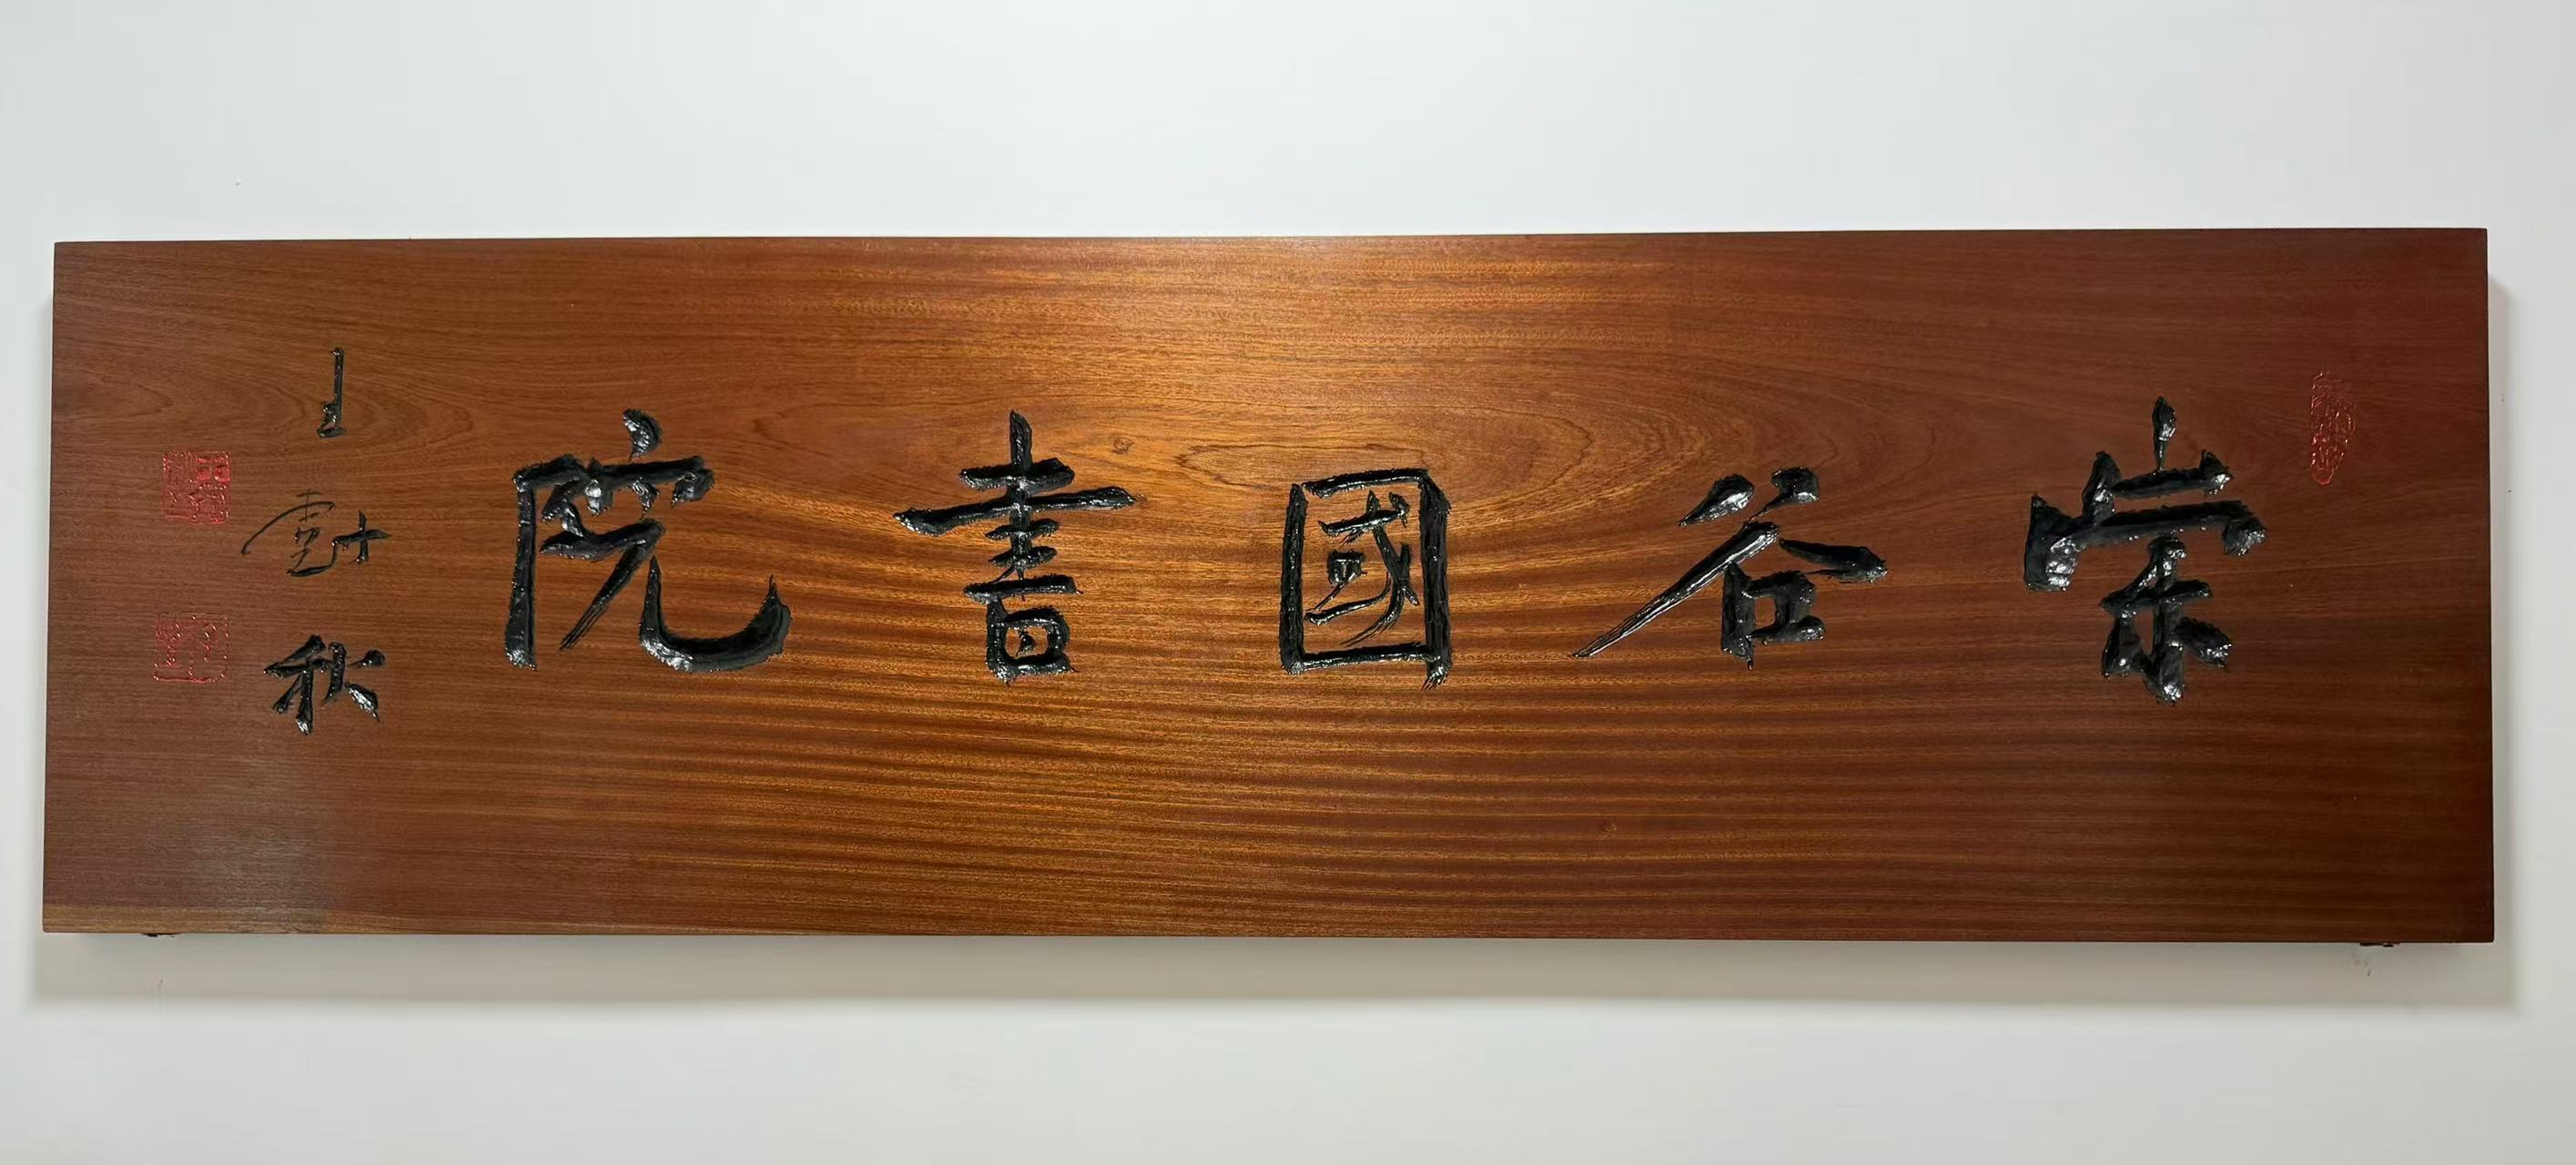 崇谷國書院
王 秋